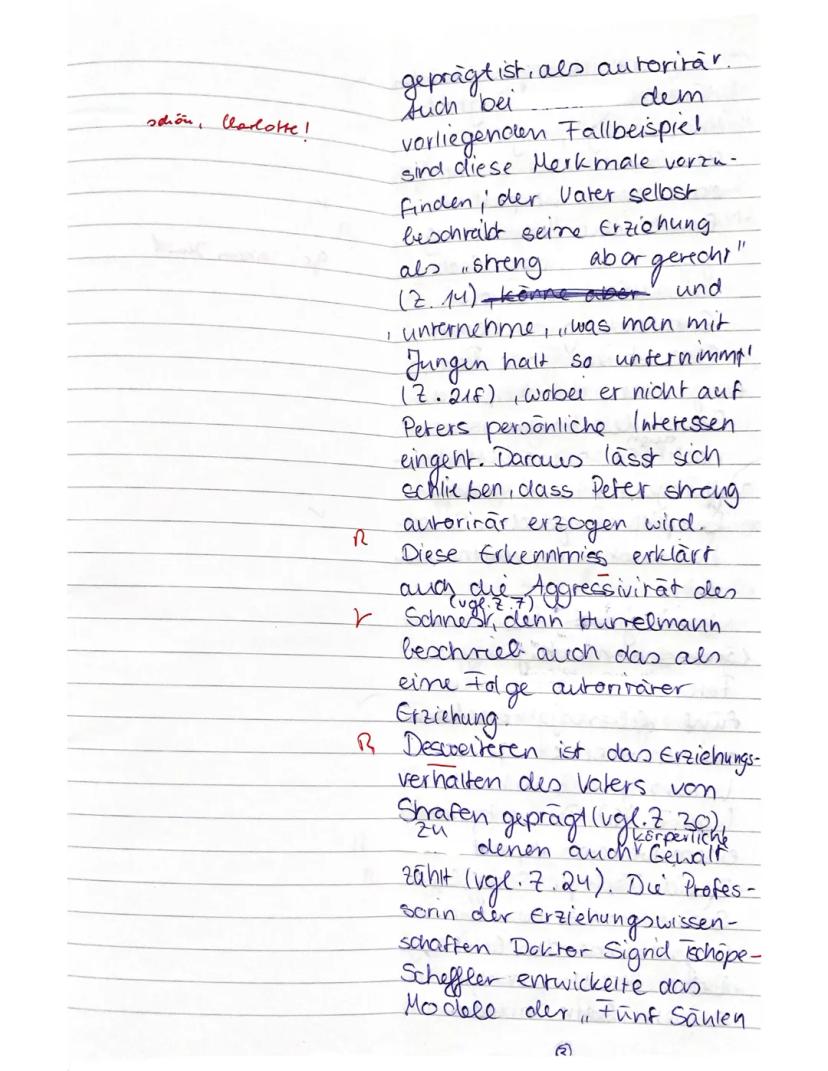 geprägt ist, als autoritär.
Auch bei dem
schön, Charlotte!
vorliegenden Fallbeispiel
sind diese Merkmale vorzu-
finden; der Vater selbst
beschreibt seine Erziehung
als „streng aber gerecht"
(Z. 14) , könne aber und
unternehme, „was man mit
Jungen halt so unternimmt"
(Z. 21f), wobei er nicht auf
Peters persönliche Interessen
eingeht. Daraus lässt sich
schließen, dass Peter streng
autoritär erzogen wird.
R Diese Erkenntniss erklärt
auch die Aggressivität des
(vgl. Z. 7)
r Schnest, denn Hurrelmann
beschrieb auch das als
eine Folge autoritärer
Erziehung.
R Desweiteren ist das Erziehungs-
verhalten des Vaters von
Strafen geprägt (vgl. Z 30),
zu denen auch körperliche Gewalt
zählt (vgl. Z. 24). Die Profes-
sorin der Erziehungswissen-
schaften Doktor Sigrid Tschöpe-
Scheffler entwickelte das
Modell der „Fünf Säulen
(2)